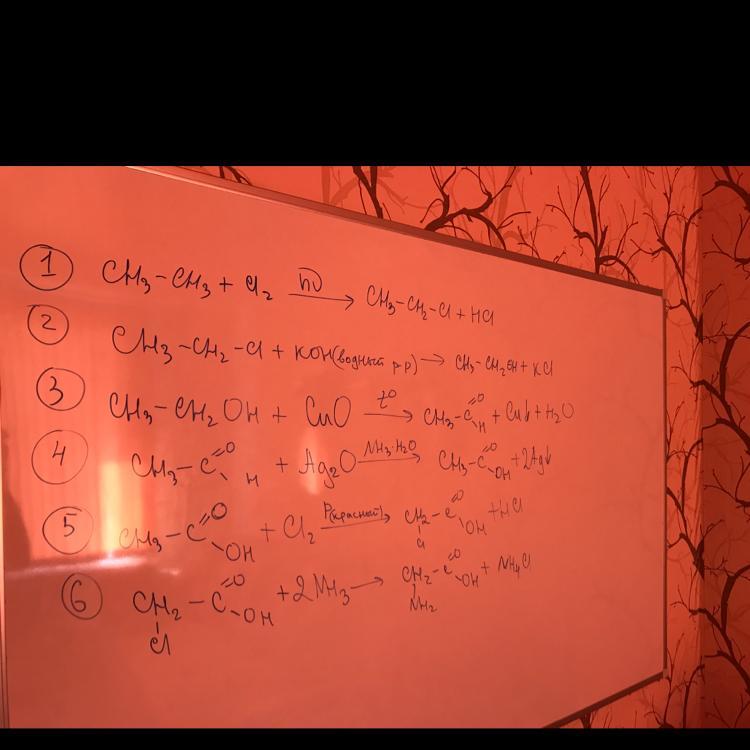 ① CH₃-CH₃ + Cl₂ hν → CH₃-CH₂-Cl + HCl
② CH₃-CH₂-Cl + KOH(водный р-р) → CH₃-CH₂OH + KCl
③ CH₃-CH₂OH + CuO t° → CH₃-C=O H + Cu↓ + H₂O
④ CH₃-C=O H + Ag₂O NH₃·H₂O → CH₃-C=O OH + 2Ag↓
⑤ CH₃-C=O OH + Cl₂ P(красный) → CH₂-C=O OH + HCl
Cl
⑥ CH₂-C=O OH + 2NH₃ → CH₂-C=O OH + NH₄Cl
Cl NH₂